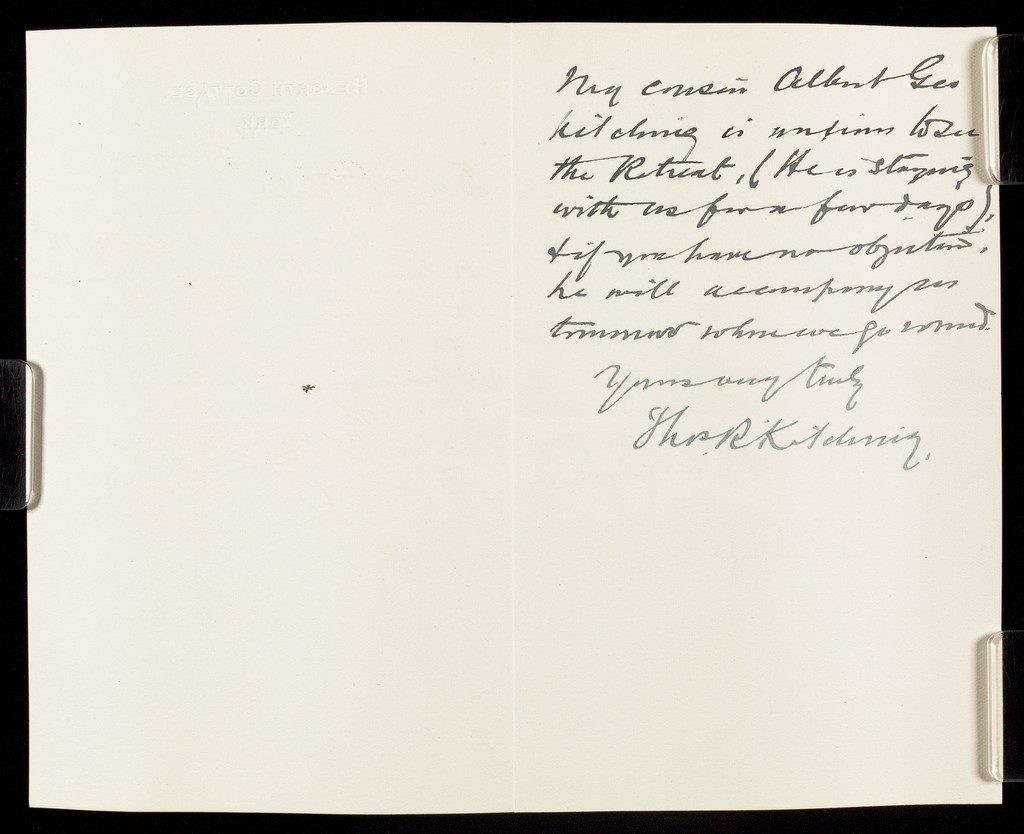 My cousin Albert Geo
Kitching is anxious to see
the Retreat, (He is staying
with us for a few days),
& if you have no objection,
he will accompany us
tomorrow when we go round.
Yours very truly
Thos. R. Kitching.